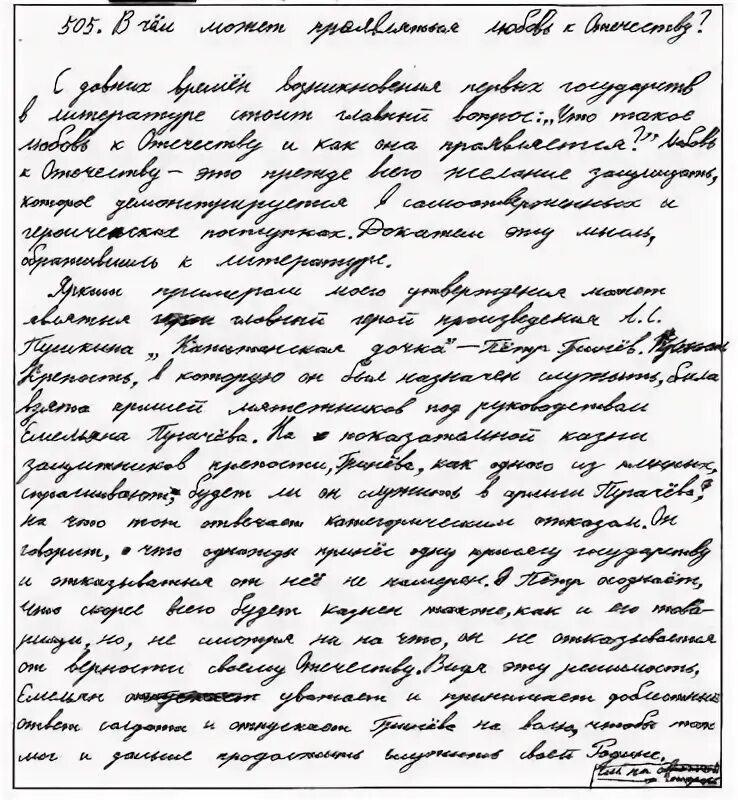 505. В чём может проявляться любовь к Отечеству?
С давних времён возникновения первых государств
в литературе стоит главный вопрос: „Что такое
любовь к Отечеству и как она проявляется?" Любовь
к Отечеству – это прежде всего желание защищать,
которое демонстрируется в самоотверженных и
героических поступках. Докажем эту мысль,
обратившись к литературе.
Ярким примером моего утверждения может
являться главный герой произведения А.С.
Пушкина „Капитанская дочка" – Пётр Гринёв.
Крепость, в которую он был назначен служить, была
взята армией мятежников под руководством
Емельяна Пугачёва. На показательной казни
защитников крепости, Гринёва, как одного из пленных,
спрашивают, будет ли он служить в армии Пугачёва,
на что тот отвечает категорическим отказом. Он
говорит, что однажды принёс одну присягу государству
и отказываться от неё не намерен. Пётр осознаёт,
что скорее всего будет казнен также, как и его това-
рищи, но, не смотря ни на что, он не отказывается
от верности своему Отечеству. Видя эту решимость,
Емельян уважает и принимает доблестный
ответ солдата и отпускает Гринёва на волю, чтобы тот
мог и дальше продолжать служить своей Родине.